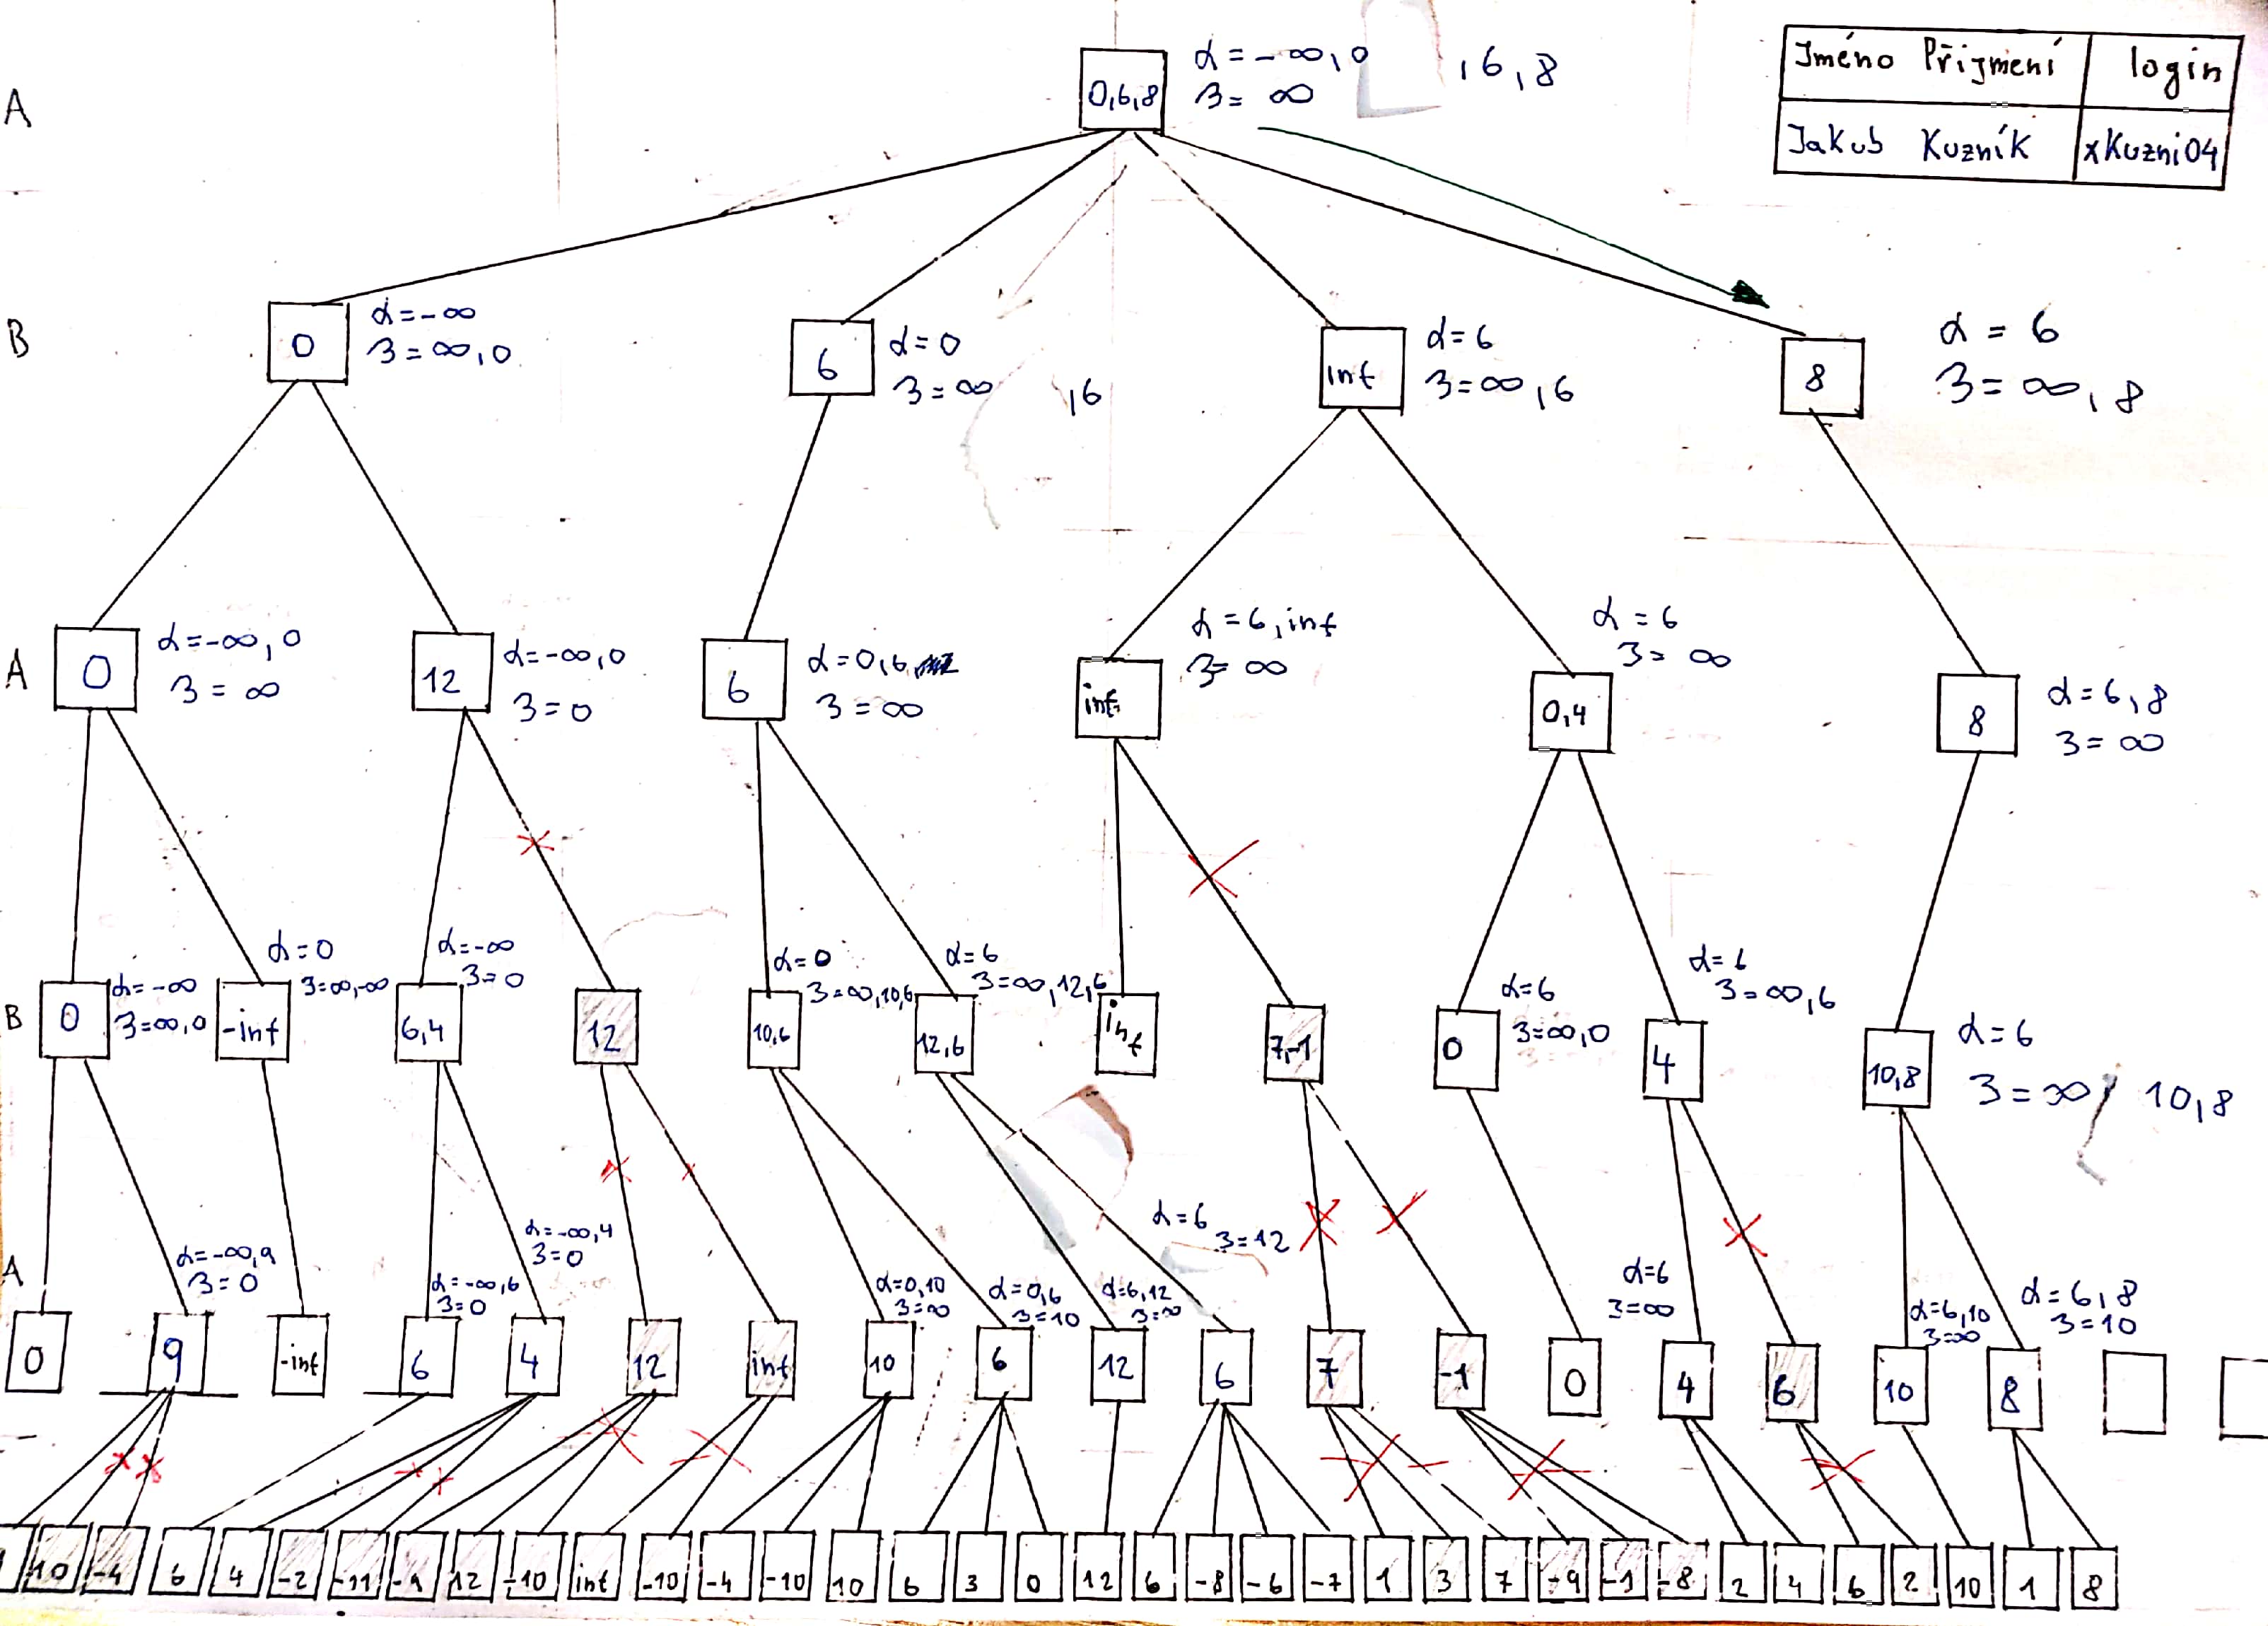 Jméno Příjmení login
Jakub Kuzník xKuzni04
A
0,6,8
α=-∞,0 ,6,8
β= ∞
B
0
α=-∞
β=∞,0
6
α=0
β=∞ ,6
inf
α=6
β=∞,6
8
α = 6
β=∞,8
A
0
α=-∞,0
β = ∞
12
α=-∞,0
β=0
6
α=0,6
β=∞
inf
α=6,inf
β=∞
0,4
α=6
β= ∞
8
α=6,8
β=∞
B
0
α=-∞
β=∞,0
-inf
α=0
β=∞,-∞
6,4
α=-∞
β=0
12
10,6
α=0
β=∞,10,6
12,6
α=6
β=∞,12,6
inf
7,-1
0
α=6
β=∞,0
4
α=6
β=∞,6
10,8
α=6
β=∞, 10,8
A
0
9
α=-∞,9
β=0
-inf
6
α=-∞,6
β=0
4
α=-∞,4
β=0
12
inf
10
α=0,10
β=∞
6
α=0,6
β=10
12
α=6,12
β=∞
6
α=6
β=12
7
-1
0
4
α=6
β=∞
6
10
α=6,10
β=∞
8
α=6,8
β=10
10 -4 6 4 -2 -11 -9 12 -10 inf -10 -4 -10 10 6 3 0 12 6 -8 -6 -7 1 3 7 -9 -1 -8 2 4 6 2 10 1 8